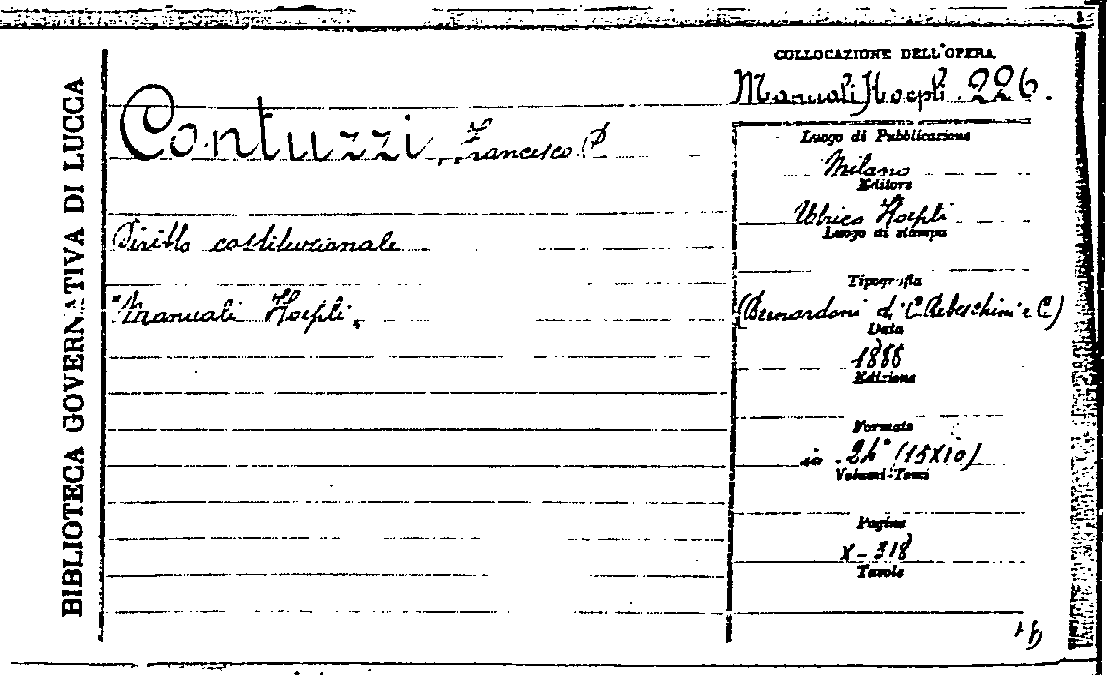 BIBLIOTECA GOVERNATIVA DI LUCCA
COLLOCAZIONE DELL'OPERA
Manuali Hoepli. 226.
Contuzzi, Francesco P
Diritto costituzionale
"Manuali Hoepli"
Luogo di Pubblicazione
Milano
Editore
Ulrico Hoepli
Luogo di stampa
Tipografia
(Bernardoni di C. Rebeschini e C)
Data
1888
Edizione
Formato
in 24° (15X10)
Volumi-Tomi
Pagine
X-318
Tavole